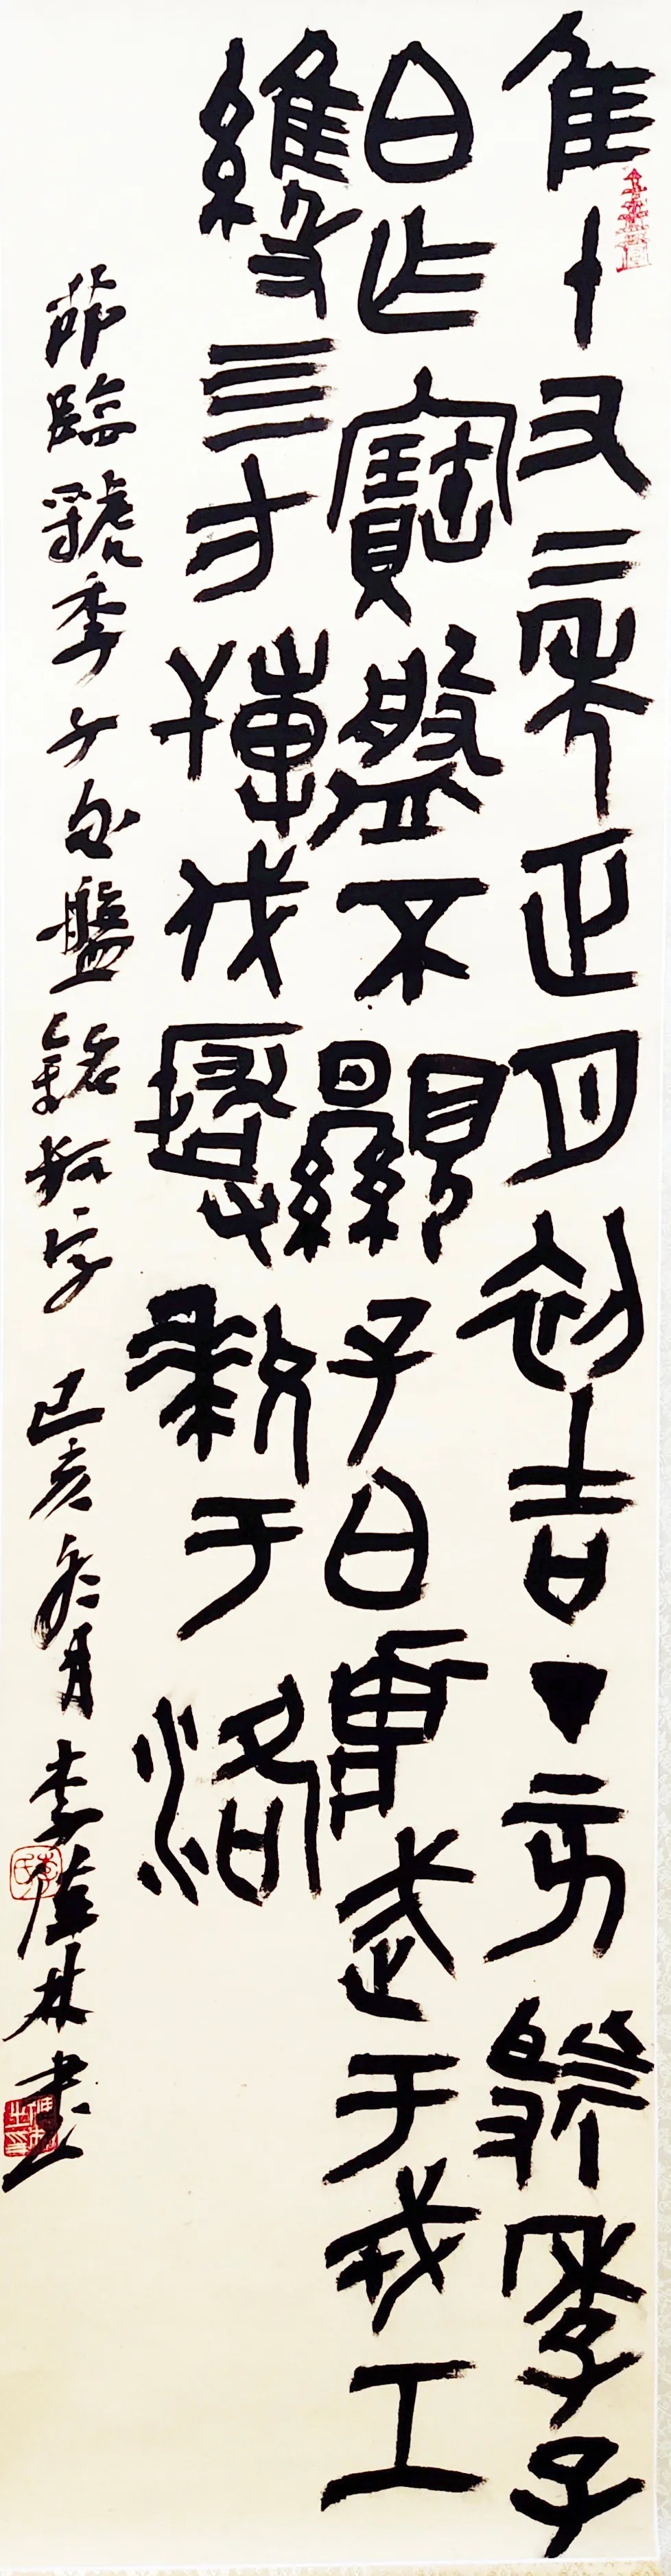 隹十又二年正月初吉丁亥虢季子
白乍寶盤不顯子白武于戎工
維四方搏伐玁狁于洛
節臨虢季子白盤銘字 己亥冬月 李林書